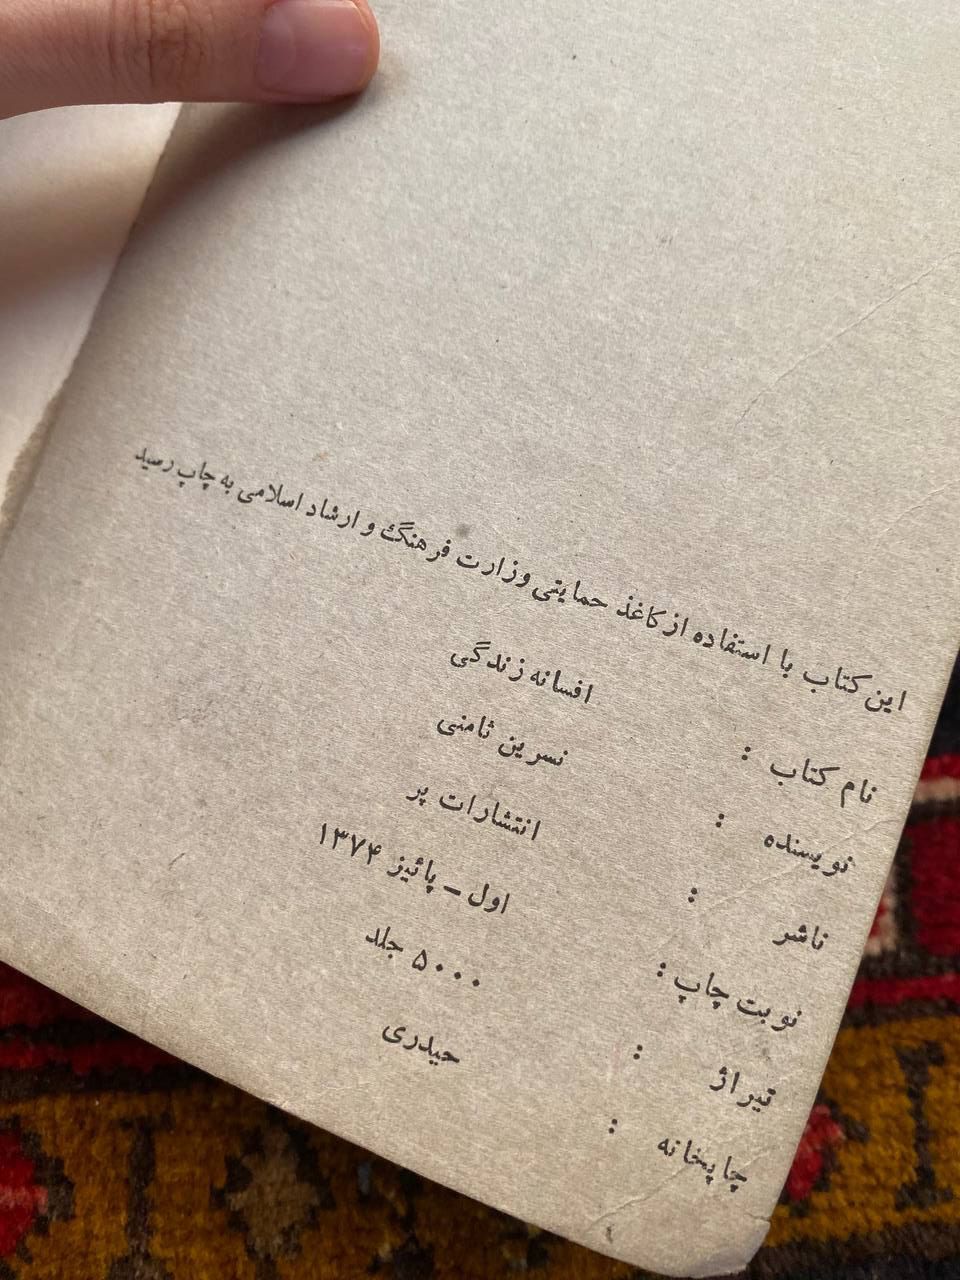 این کتاب با استفاده از کاغذ حمایتی وزارت فرهنگ و ارشاد اسلامی به چاپ رسید
نام کتاب : افسانه زندگی
نویسنده : نسرین ثامنی
ناشر : انتشارات پر
نوبت چاپ : اول - پائیز ۱۳۷۴
تیراژ : ۵۰۰۰ جلد
چاپخانه : حیدری